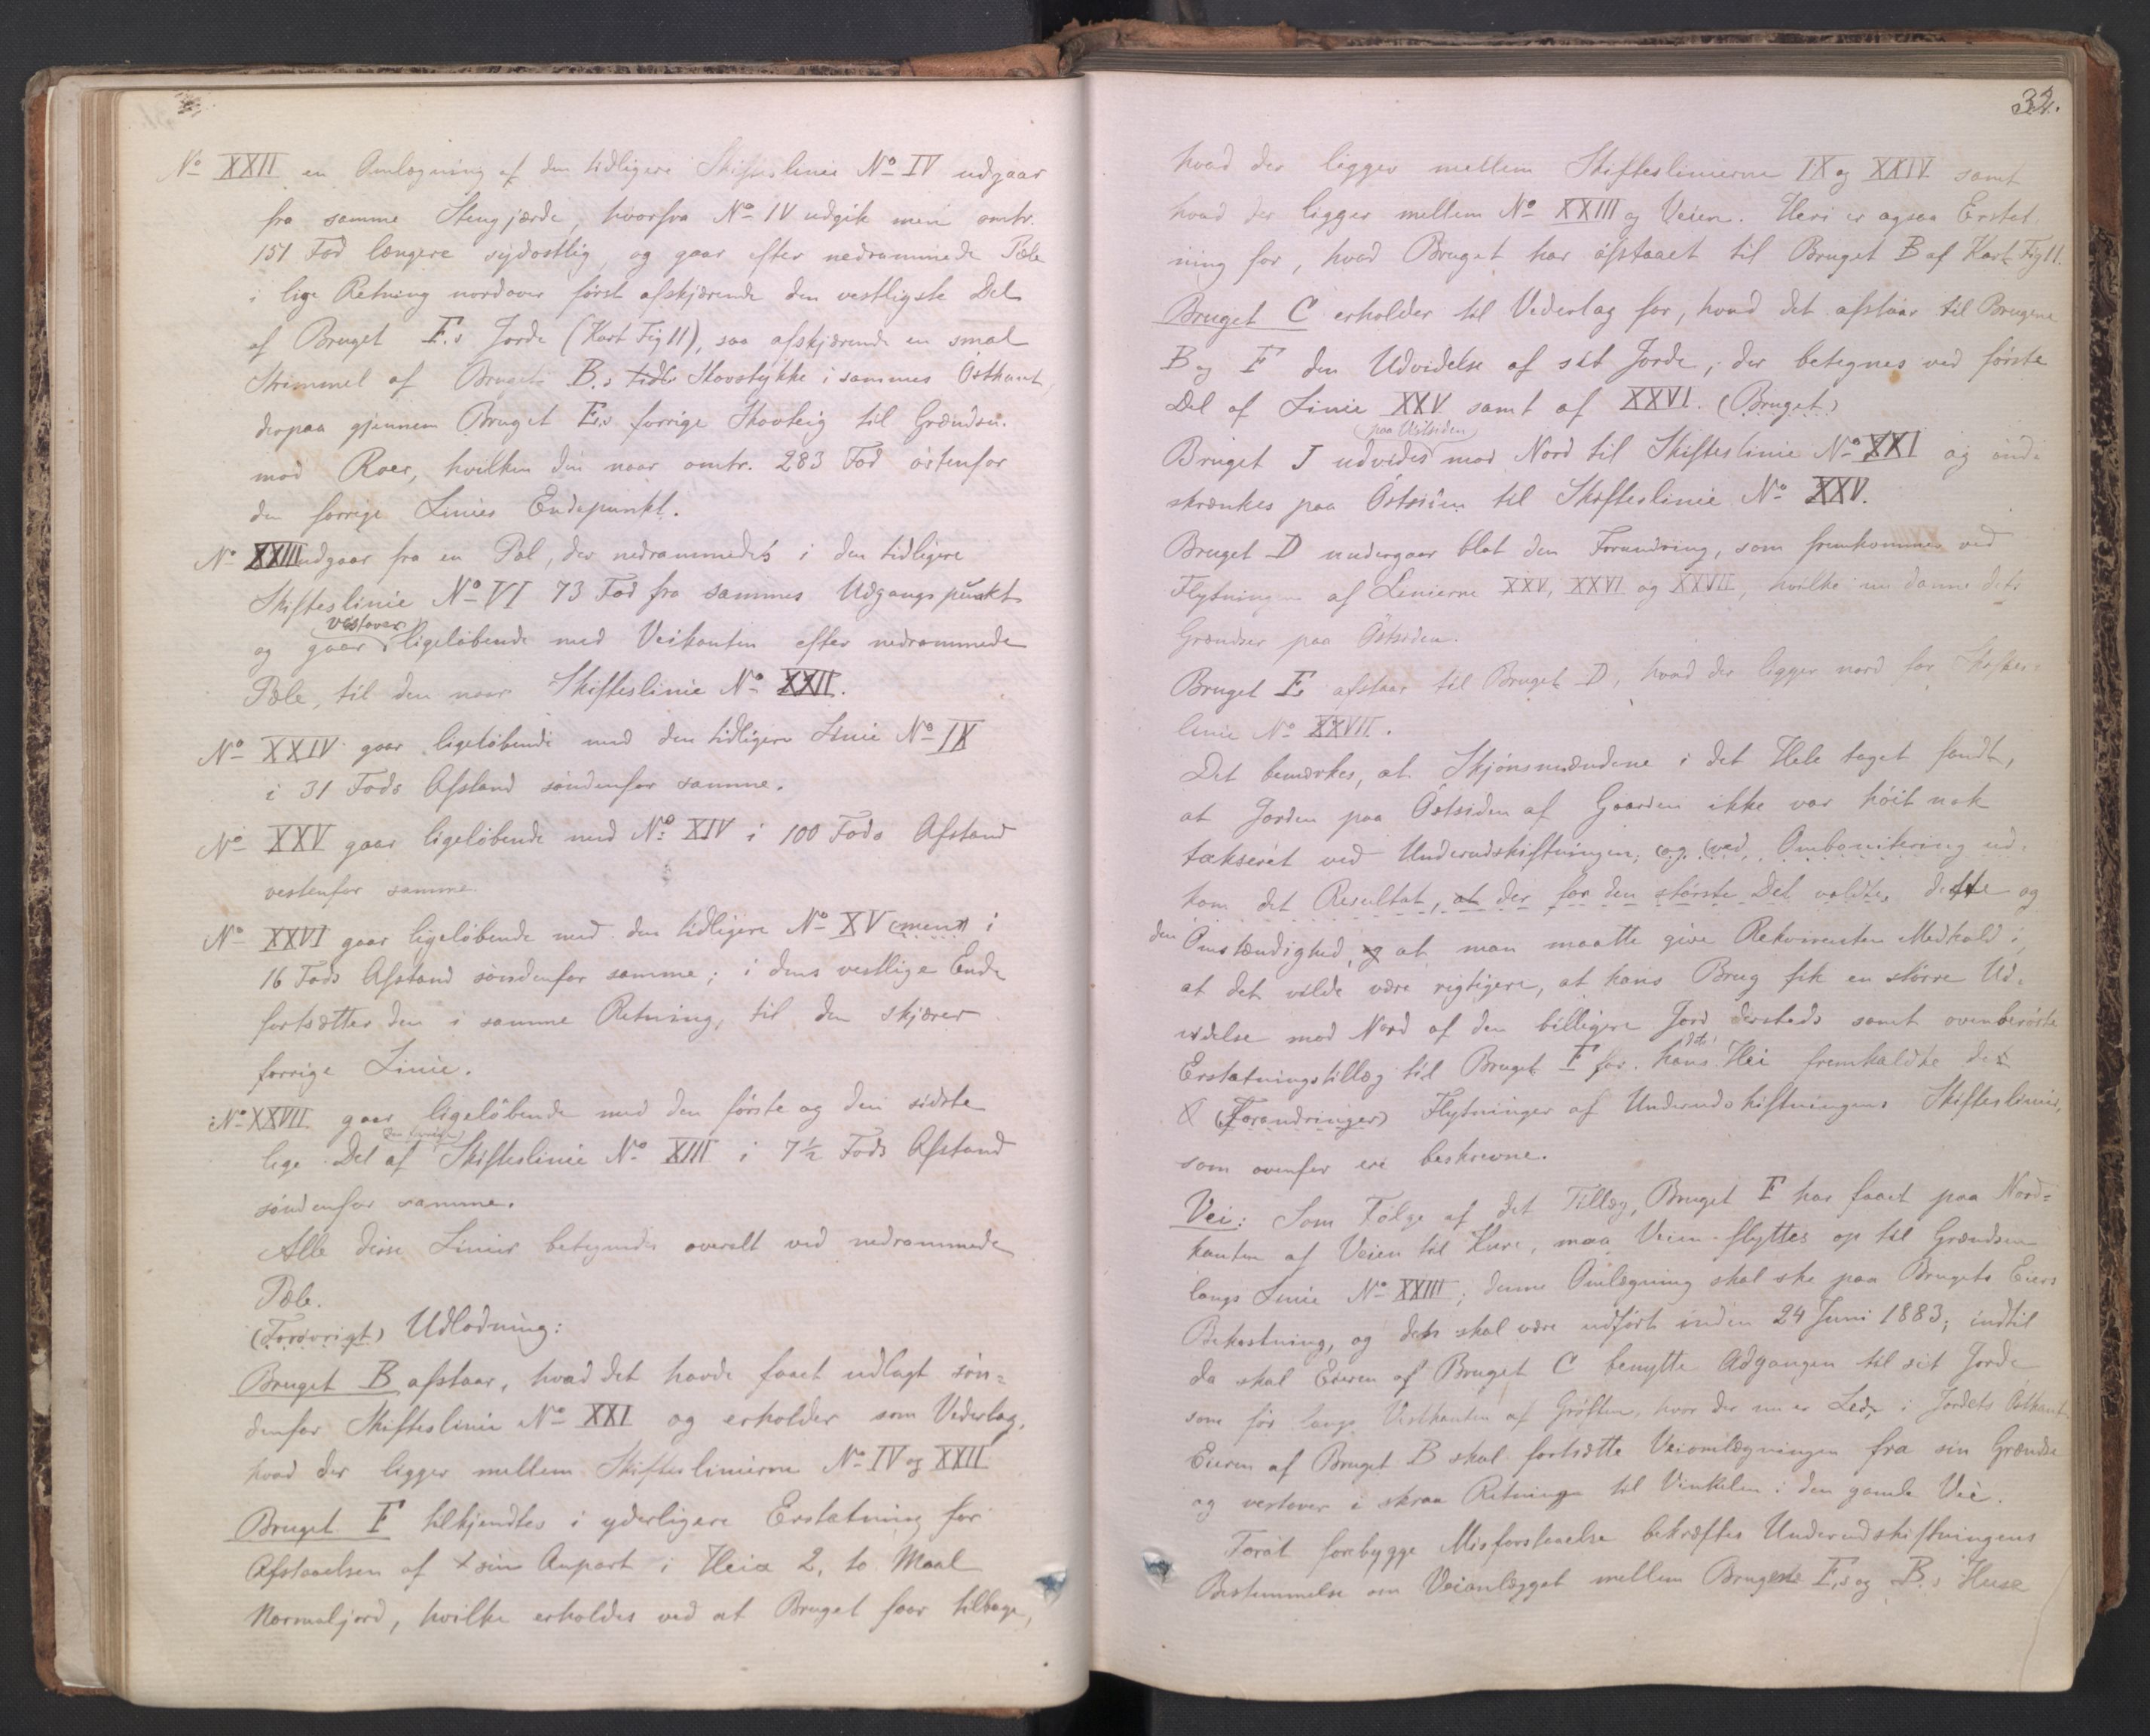 No XXII en Omlægning af den tidligere Skifteslinie No IV udgaar
fra samme Stengjærde, hvorfra No IV udgik men omtr.
151 Fod længere sydostlig, og gaar efter nedrammede Pæle
i lige Retning nordover først afskjærende den vestligste Del
af Bruget F.s Jorde (Kart Fig 11), saa afskjærende en smal
Strimmel af Bruget B.s tidl. Skovstykke i sammes Østkant,
derpaa gjennem Bruget E.s forrige Skovteig til Grændsen
mod Roer, hvilken den naar omtr. 283 Fod østenfor
den forrige Linies Endepunkt.
No XXIII udgaar fra en Pæl, der nedrammedes i den tidligere
Skifteslinie No VI 73 Fod fra sammes Udgangspunkt
vestover
og gaar ligeløbende med Veikanten efter nedrammede
Pæle, til den naar Skifteslinie No XXII.
No XXIV gaar ligeløbende med den tidligere Linie No IX
i 31 Fods Afstand søndenfor samme.
No XXV gaar ligeløbende med No XIV i 100 Fods Afstand
vestenfor samme.
No XXVI gaar ligeløbende med den tidligere No XV (men) i
16 Fods Afstand søndenfor samme; i dens vestlige Ende
fortsætter den i samme Retning, til den skjærer
forrige Linie.
No XXVII gaar ligeløbende med den første og den sidste
lige Del af Skifteslinie No XIII i 7½ Fods Afstand
søndenfor samme.
Alle disse Linier betegnedes overalt ved nedrammede
Pæle.
(Forøvrigt) Udlodning:
Bruget B afstaar, hvad det havde faaet udlagt søn-
denfor Skifteslinie No XXI og erholder som Vederlag,
hvad der ligger mellem Skifteslinierne No IV og XXII
Bruget F tilkjendtes i yderligere Erstatning for
Afstaaelsen af sin Anpart i Heia 2, to Maal
Normaljord, hvilke erholdes ved at Bruget faar tilbage,
32.
hvad der ligger mellem Skifteslinierne IX og XXIV samt
hvad der ligger mellem No XXIII og Veien. Heri er ogsaa Erstat
ning for, hvad Bruget har afstaaet til Bruget B af Kart Fig 11.
Bruget C erholder til Vederlag for, hvad det afstaar til Brugene
B og F den Udvidelse af sit Jorde, der betegnes ved første
Del af Linie XXV samt af XXVI. (Bruget)
paa Vestsiden
Bruget J udvides mod Nord til Skifteslinie No XXI og ind-
skrænkes paa Østsiden til Skifteslinie No XXV.
Bruget D undergaar blot den Forandring, som fremkommer ved
Flytningen af Linierne XXV, XXVI og XXVII, hvilke nu danne dets
Grændser paa Østsiden.
Bruget E afstaar til Bruget D, hvad der ligger nord for Skiftes-
linie No XXVII.
Det bemærkes, at Skjønsmændene i det Hele taget fandt,
at Jorden paa Østsiden af Gaarden ikke var høit nok
takseret ved Underudskiftningen, (og (ved Ombonitering ud-
kom det Resultat, at der for den største Del voldte, dette og
den Omstændighed, og at man maatte give Rekvirenten Medhold i,
at det vilde være rigtigere, at hans Brug fik en større Ud-
videlse mod Nord af den billigere Jord dersteds samt ovenberørte
dets
Erstatningstillæg til Bruget F for hans Hei fremkaldte de
(Forandringer) Flytninger af Underudskiftningens Skifteslinier,
som ovenfor ere beskrevne.
Vei: Som Følge af det Tillæg, Bruget F har faaet paa Nord-
kanten af Veien til Kure, maa Veien flyttes op til Grændsen
langs Linie No XXIII; denne Omlægning skal ske paa Brugets Eiers
Bekostning, og den skal være udført inden 24 Juni 1883; indtil
da skal Eieren af Bruget C benytte Adgangen til sit Jorde
som før langs Vestkanten af Grøften, hvor der nu er Led, i Jordets Østkant.
Eieren af Bruget B skal fortsætte Veiomlægningen fra sin Grændse
og vestover i skraa Retning til Vinkelen i den gamle Vei.
Forat forebygge Misforstaaelse bekræftes Underudskiftningens
Bestemmelse om Veianlægget mellem Brugene E.s og B.s Huse